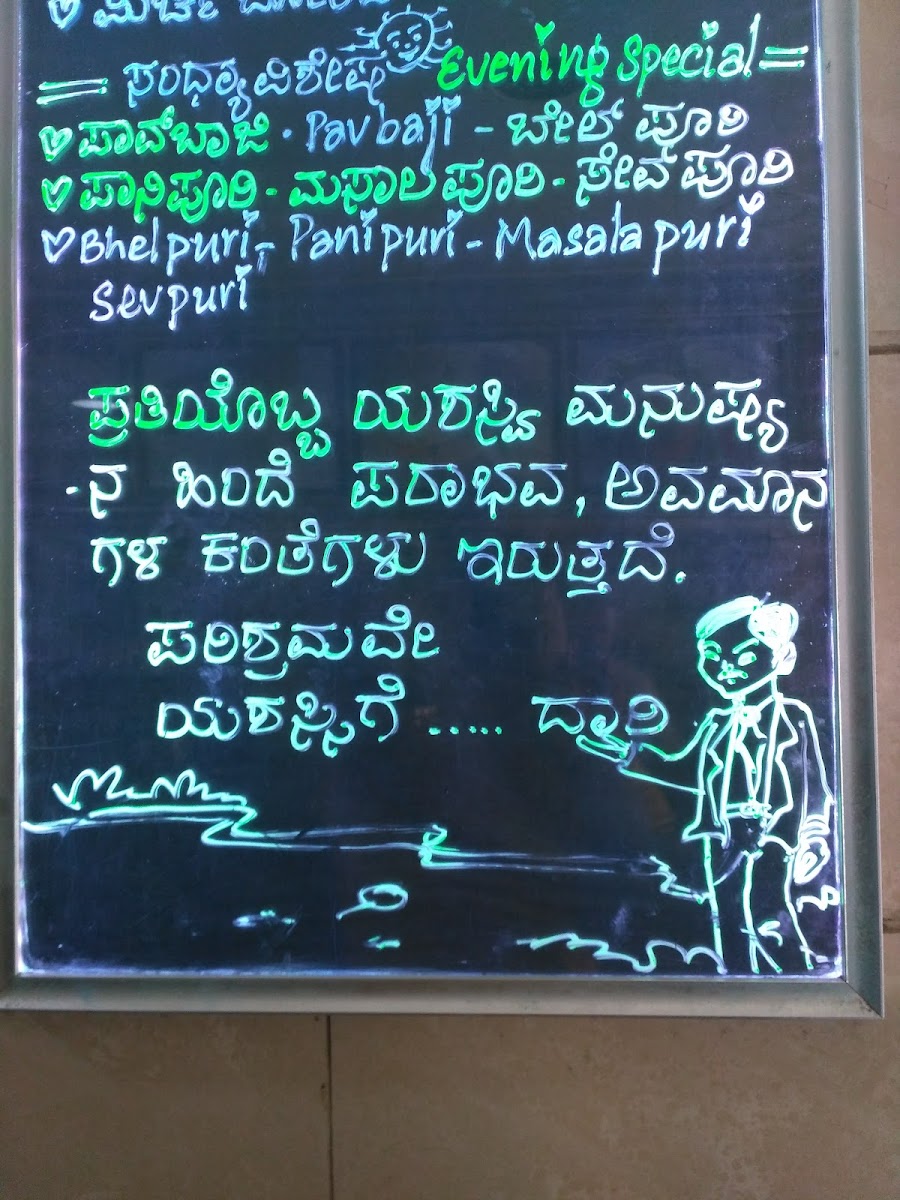 ಸಂಧ್ಯಾ ವಿಶೇಷ Evening Special =
ಪಾವ್‌ಬಾಜಿ · Pav baji - ಬೇಲ್ ಪೂರಿ
ಪಾನಿಪೂರಿ - ಮಸಾಲ ಪೂರಿ - ಸೇವ್ ಪೂರಿ
Bhel puri, - Pani puri - Masala puri
Sev puri
ಪ್ರತಿಯೊಬ್ಬ ಯಶಸ್ವಿ ಮನುಷ್ಯ
-ನ ಹಿಂದೆ ಪರಾಭವ, ಅವಮಾನ
ಗಳ ಕಂತೆಗಳು ಇರುತ್ತದೆ.
ಪರಿಶ್ರಮವೇ
ಯಶಸ್ಸಿಗೆ ..... ದ್ವಾರಿ